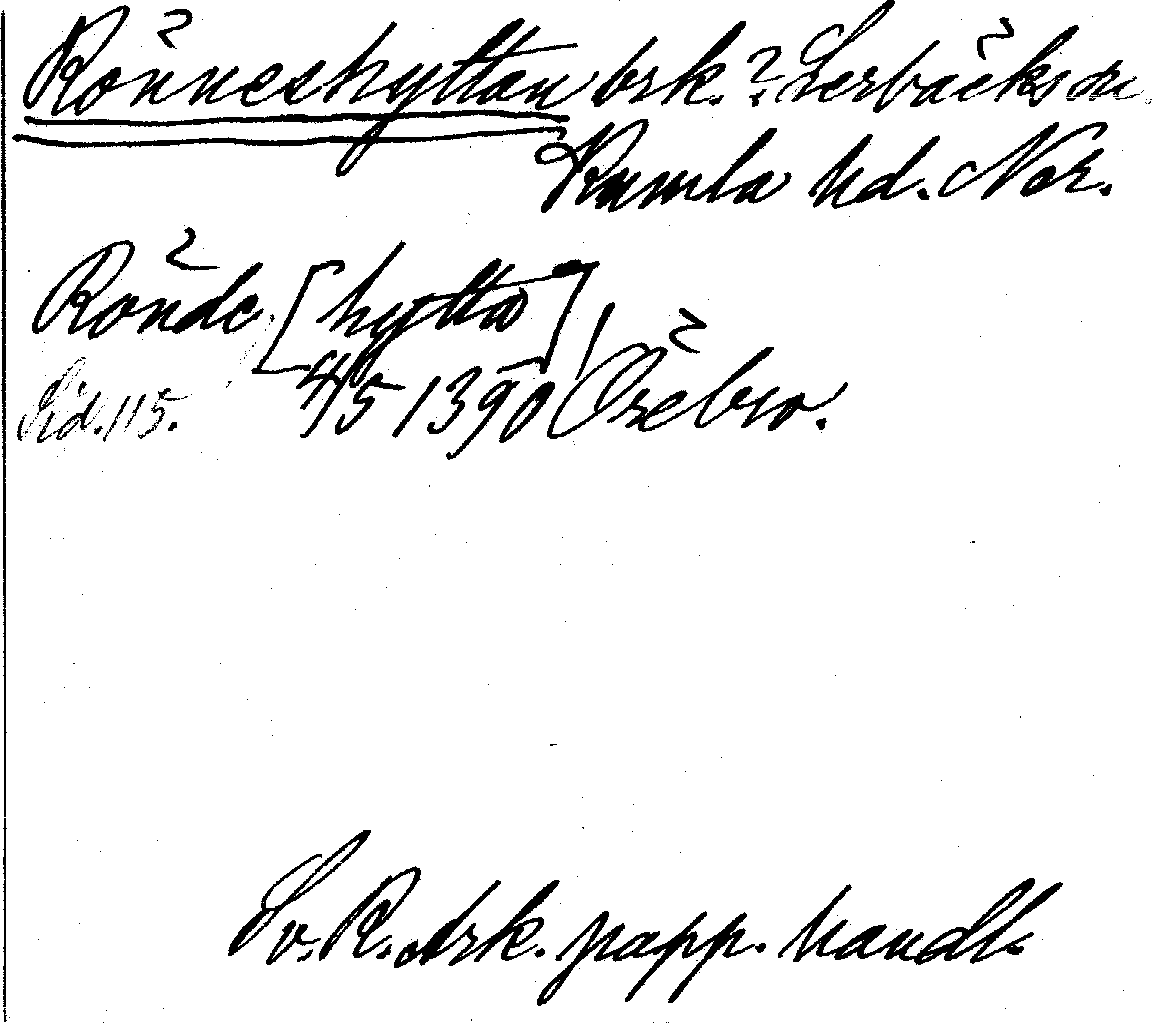 Rönneshyttan brk.? Lerbäcks sn.
Kumla hd. När.
Rönde [hytta]
Sid. 115. 4/5 1390 Örebro.
Sv. R. Ark. papp. handl.